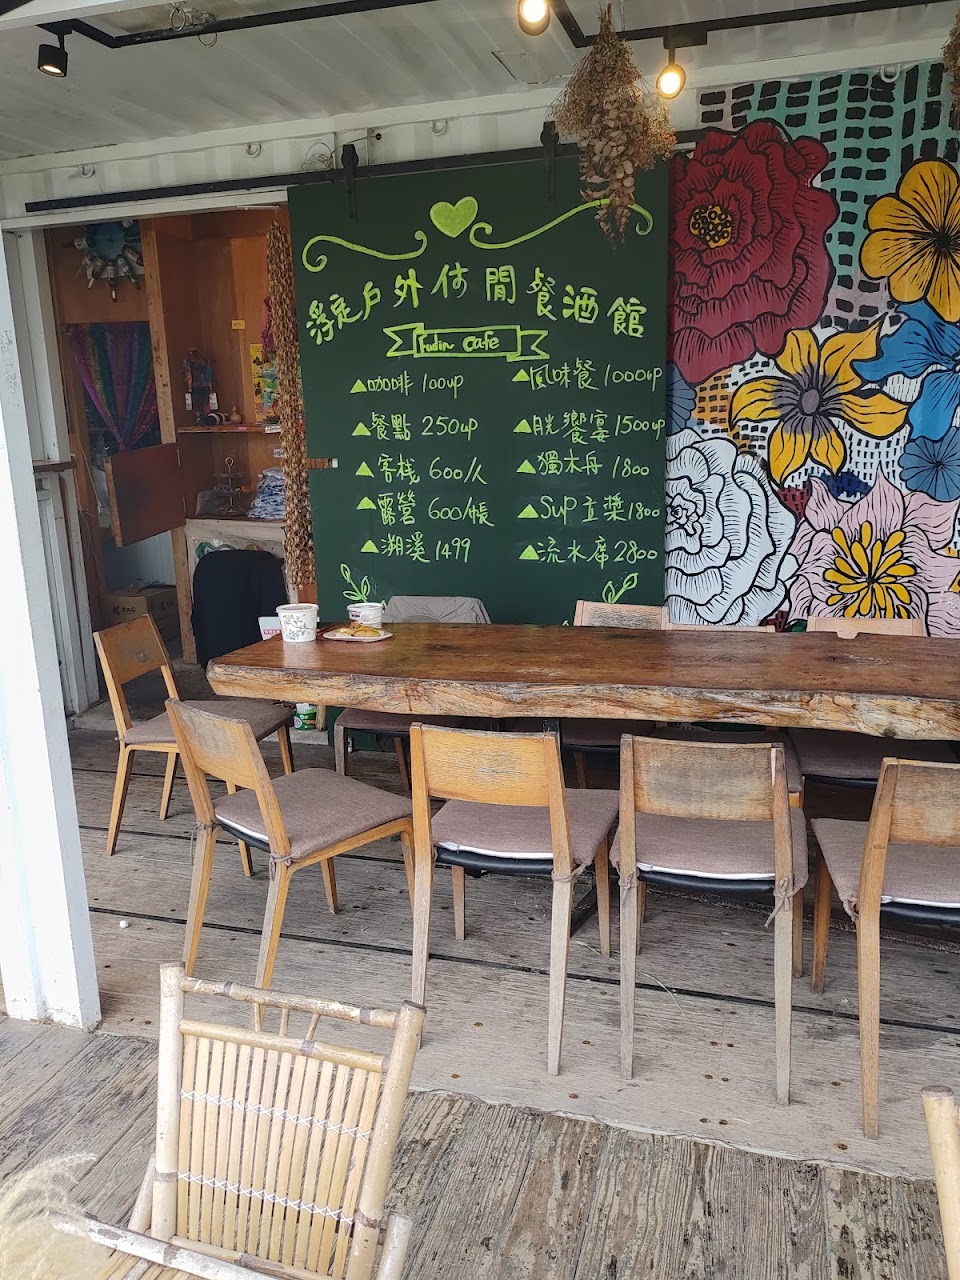 浮定戶外休閒餐酒館
Fudin cafe
▲咖啡 100up
▲餐點 250up
▲客栈 600/人
▲露營 600/帳
▲溯溪 1499
▲風味餐 1000up
▲月光饗宴 1500up
▲獨木舟 1800
▲SUP立槳 1800
▲流水席 2800